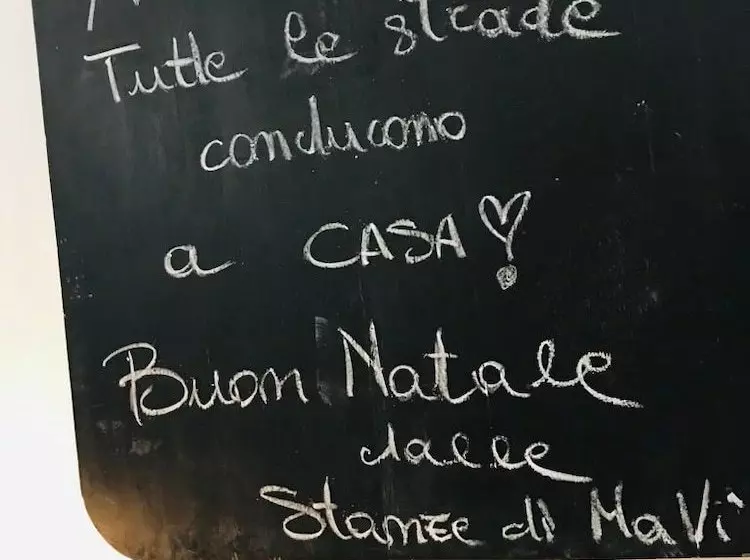 Tutte le strade
conducono
a CASA!
Buon Natale
dalle
Stanze di MaVi